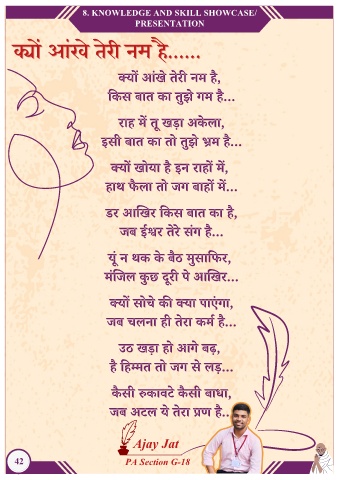 8. KNOWLEDGE AND SKILL SHOWCASE/
PRESENTATION
क्यों आंखे तेरी नम है......
क्यों आंखे तेरी नम है,
किस बात का तुझे गम है...
राह में तू खड़ा अकेला,
इसी बात का तो तुझे भ्रम है...
क्यों खोया है इन राहों में,
हाथ फैला तो जग बाहों में...
डर आखिर किस बात का है,
जब ईश्वर तेरे संग है...
यूं न थक के बैठ मुसाफिर,
मंजिल कुछ दूरी पे आखिर...
क्यों सोचे की क्या पाएंगा,
जब चलना ही तेरा कर्म है...
उठ खड़ा हो आगे बढ़,
है हिम्मत तो जग से लड़...
कैसी रुकावटे कैसी बाधा,
जब अटल ये तेरा प्रण है...
Ajay Jat
PA Section G-18
42